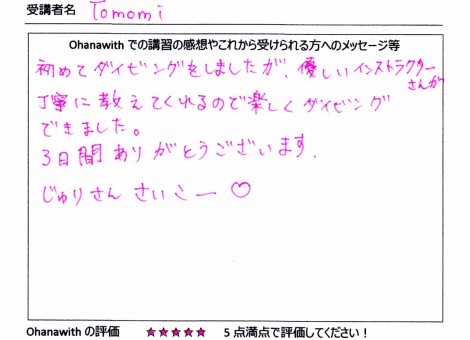 受講者名 Tomomi
Ohanawith での講習の感想やこれから受けられる方へのメッセージ等
初めてダイビングをしましたが、優しいインストラクターさんが
丁寧に教えてくれるので楽しくダイビング
できました。
3日間ありがとうございます.
じゅりさん さいこー ♡
Ohanawith の評価 ★★★★★ 5 点満点で評価してください！